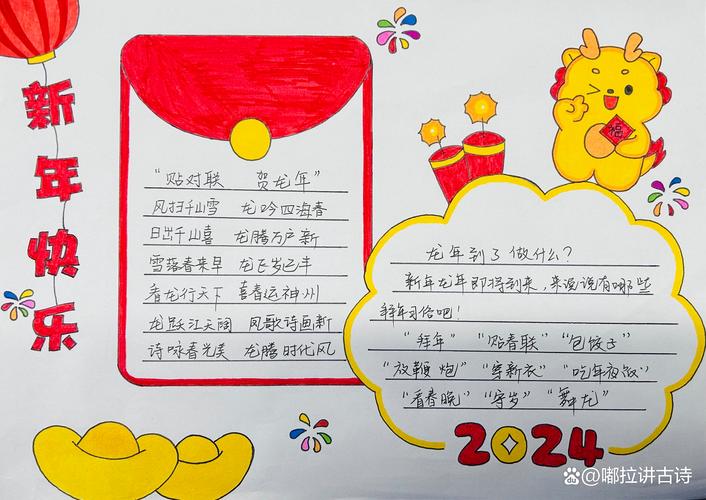 新年快乐
"贴对联 贺龙年"
风扫千山雪 龙吟四海春
日出千山喜 龙腾万户新
雪落春来早 龙飞岁已丰
看龙行天下 喜春运神州
龙跃江天阔 凤歌诗画新
诗咏春光美 龙腾时代风
福
龙年到了做什么?
新年龙年即将到来,来说说有哪些
拜年习俗吧!
"拜年" "贴春联" "包饺子"
"放鞭炮" "穿新衣" "吃年夜饭"
"看春晚" "守岁" "舞龙"
2024
@嘟拉讲古诗